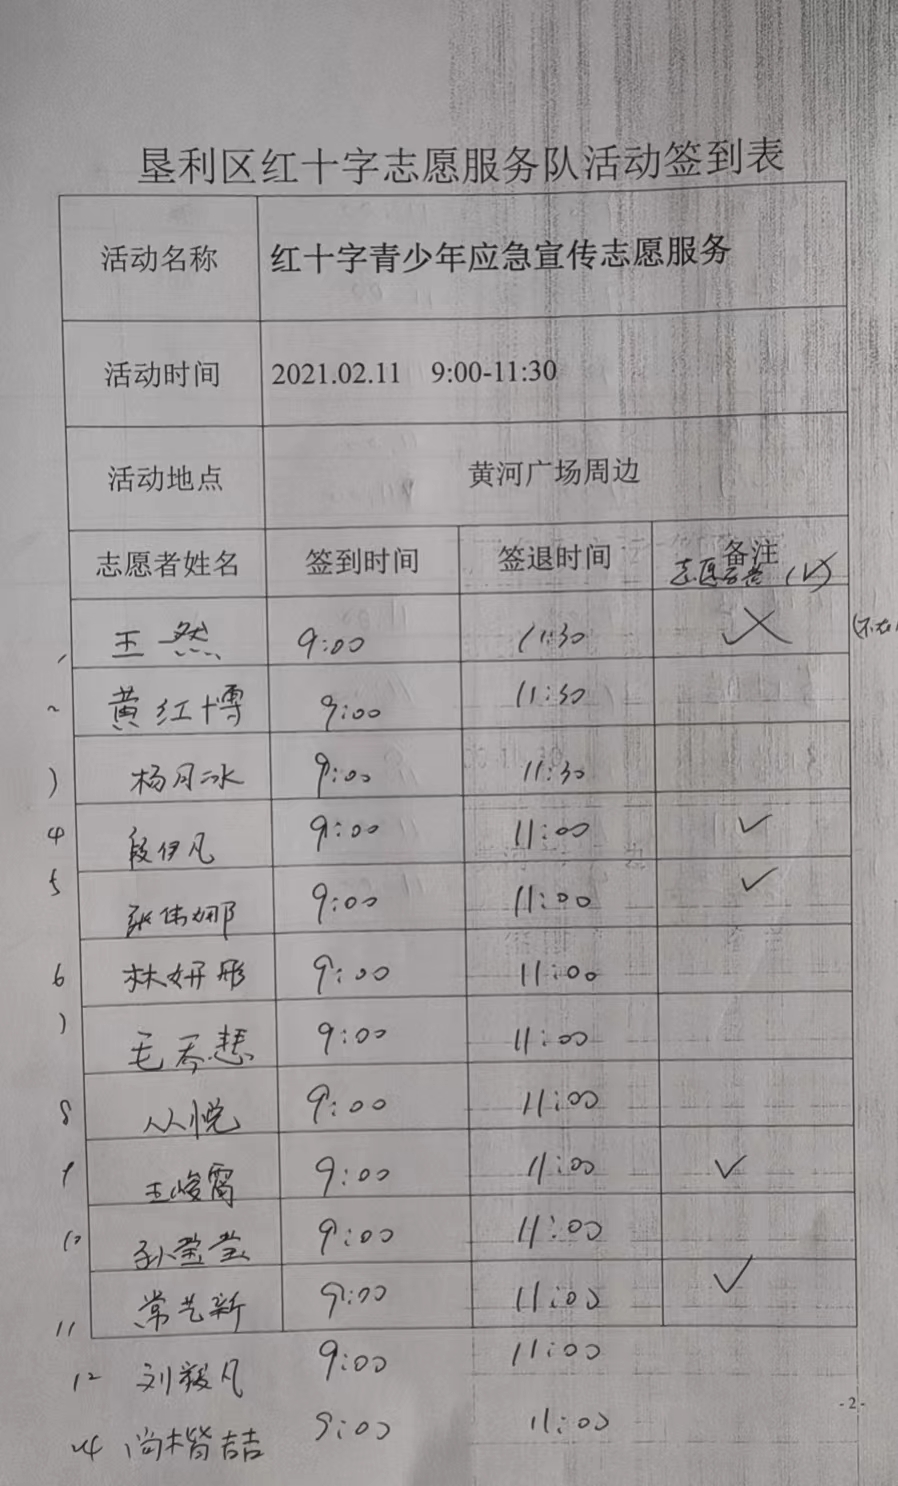 垦利区红十字志愿服务队活动签到表
活动名称 红十字青少年应急宣传志愿服务
活动时间 2021.02.11 9:00-11:30
活动地点 黄河广场周边
志愿者姓名 签到时间 签退时间 备注
(✓)
1 王然 9:00 11:30
2 黄红博 9:00 11:30
3 杨月冰 9:00 11:30
4 段伊凡 9:00 11:00 ✓
5 张伟娜 9:00 11:00 ✓
6 林妍彤 9:00 11:00
7 毛 9:00 11:00
8 从悦 9:00 11:00
9 王峻霄 9:00 11:00 ✓
10 孙莹莹 9:00 11:00
11 常艺新 9:00 11:00 ✓
12 刘毅凡 9:00 11:00
尚楷喆 9:00 11:00
-2-